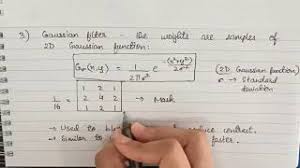 3) Gaussian filter - the weights are samples of
2D Gaussian function:
Gσ(x,y) = 1/2πσ² e^-(x²+y²)/2σ² (2D Gaussian function)
σ → Standard deviation
1/16 = 1 2 1 → Mask
2 4 2
1 2 1
→ Used to reduce contrast.
→ Similar to faster.